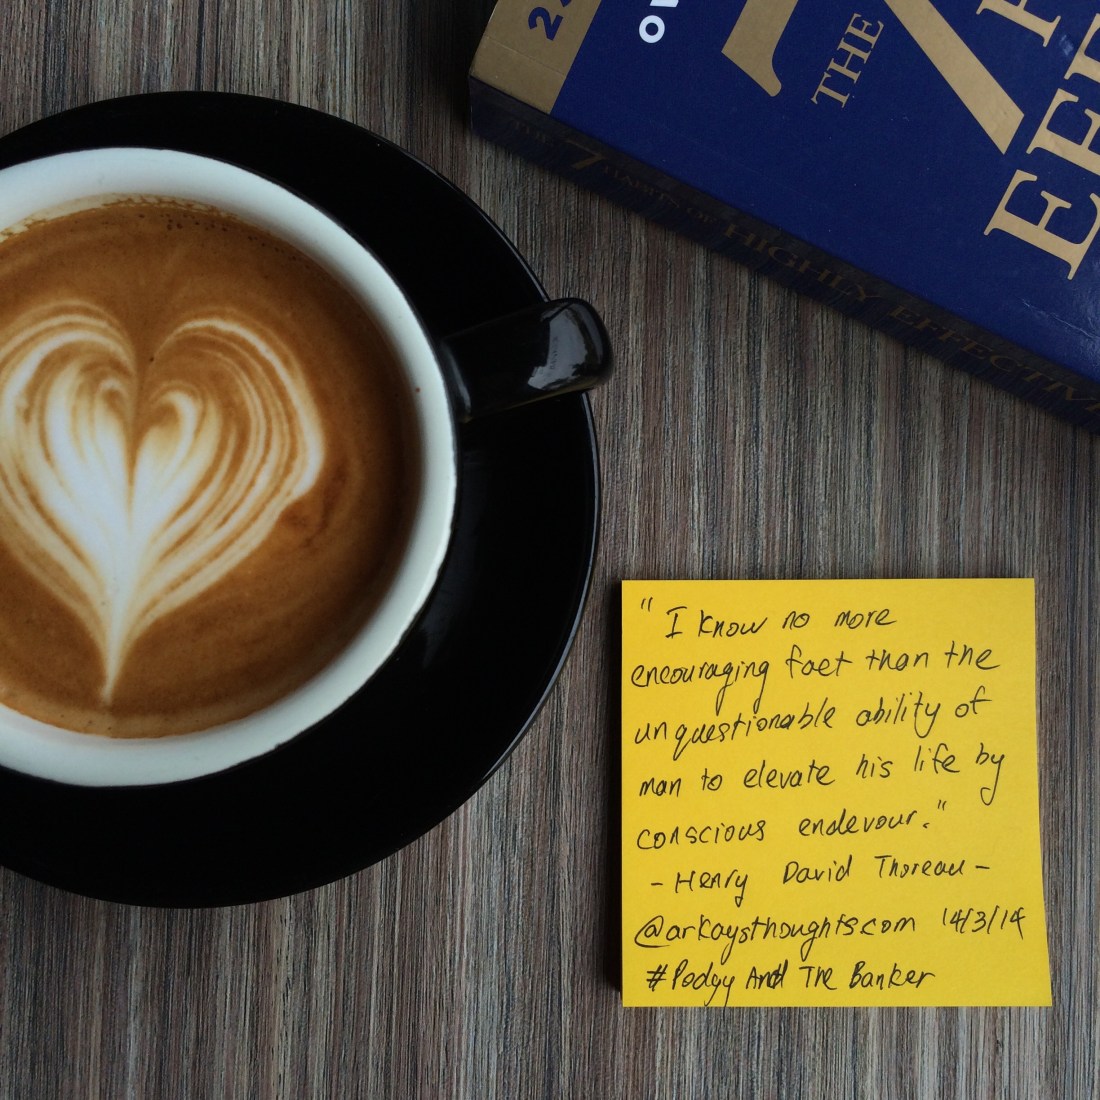 THE
THE 7 HABITS OF HIGHLY EFFECTIVE
" I know no more
encouraging fact than the
unquestionable ability of
man to elevate his life by
conscious endevour."
- Henry David Thoreau -
@arkaysthoughts.com 14/3/14
#Podgy And The Banker